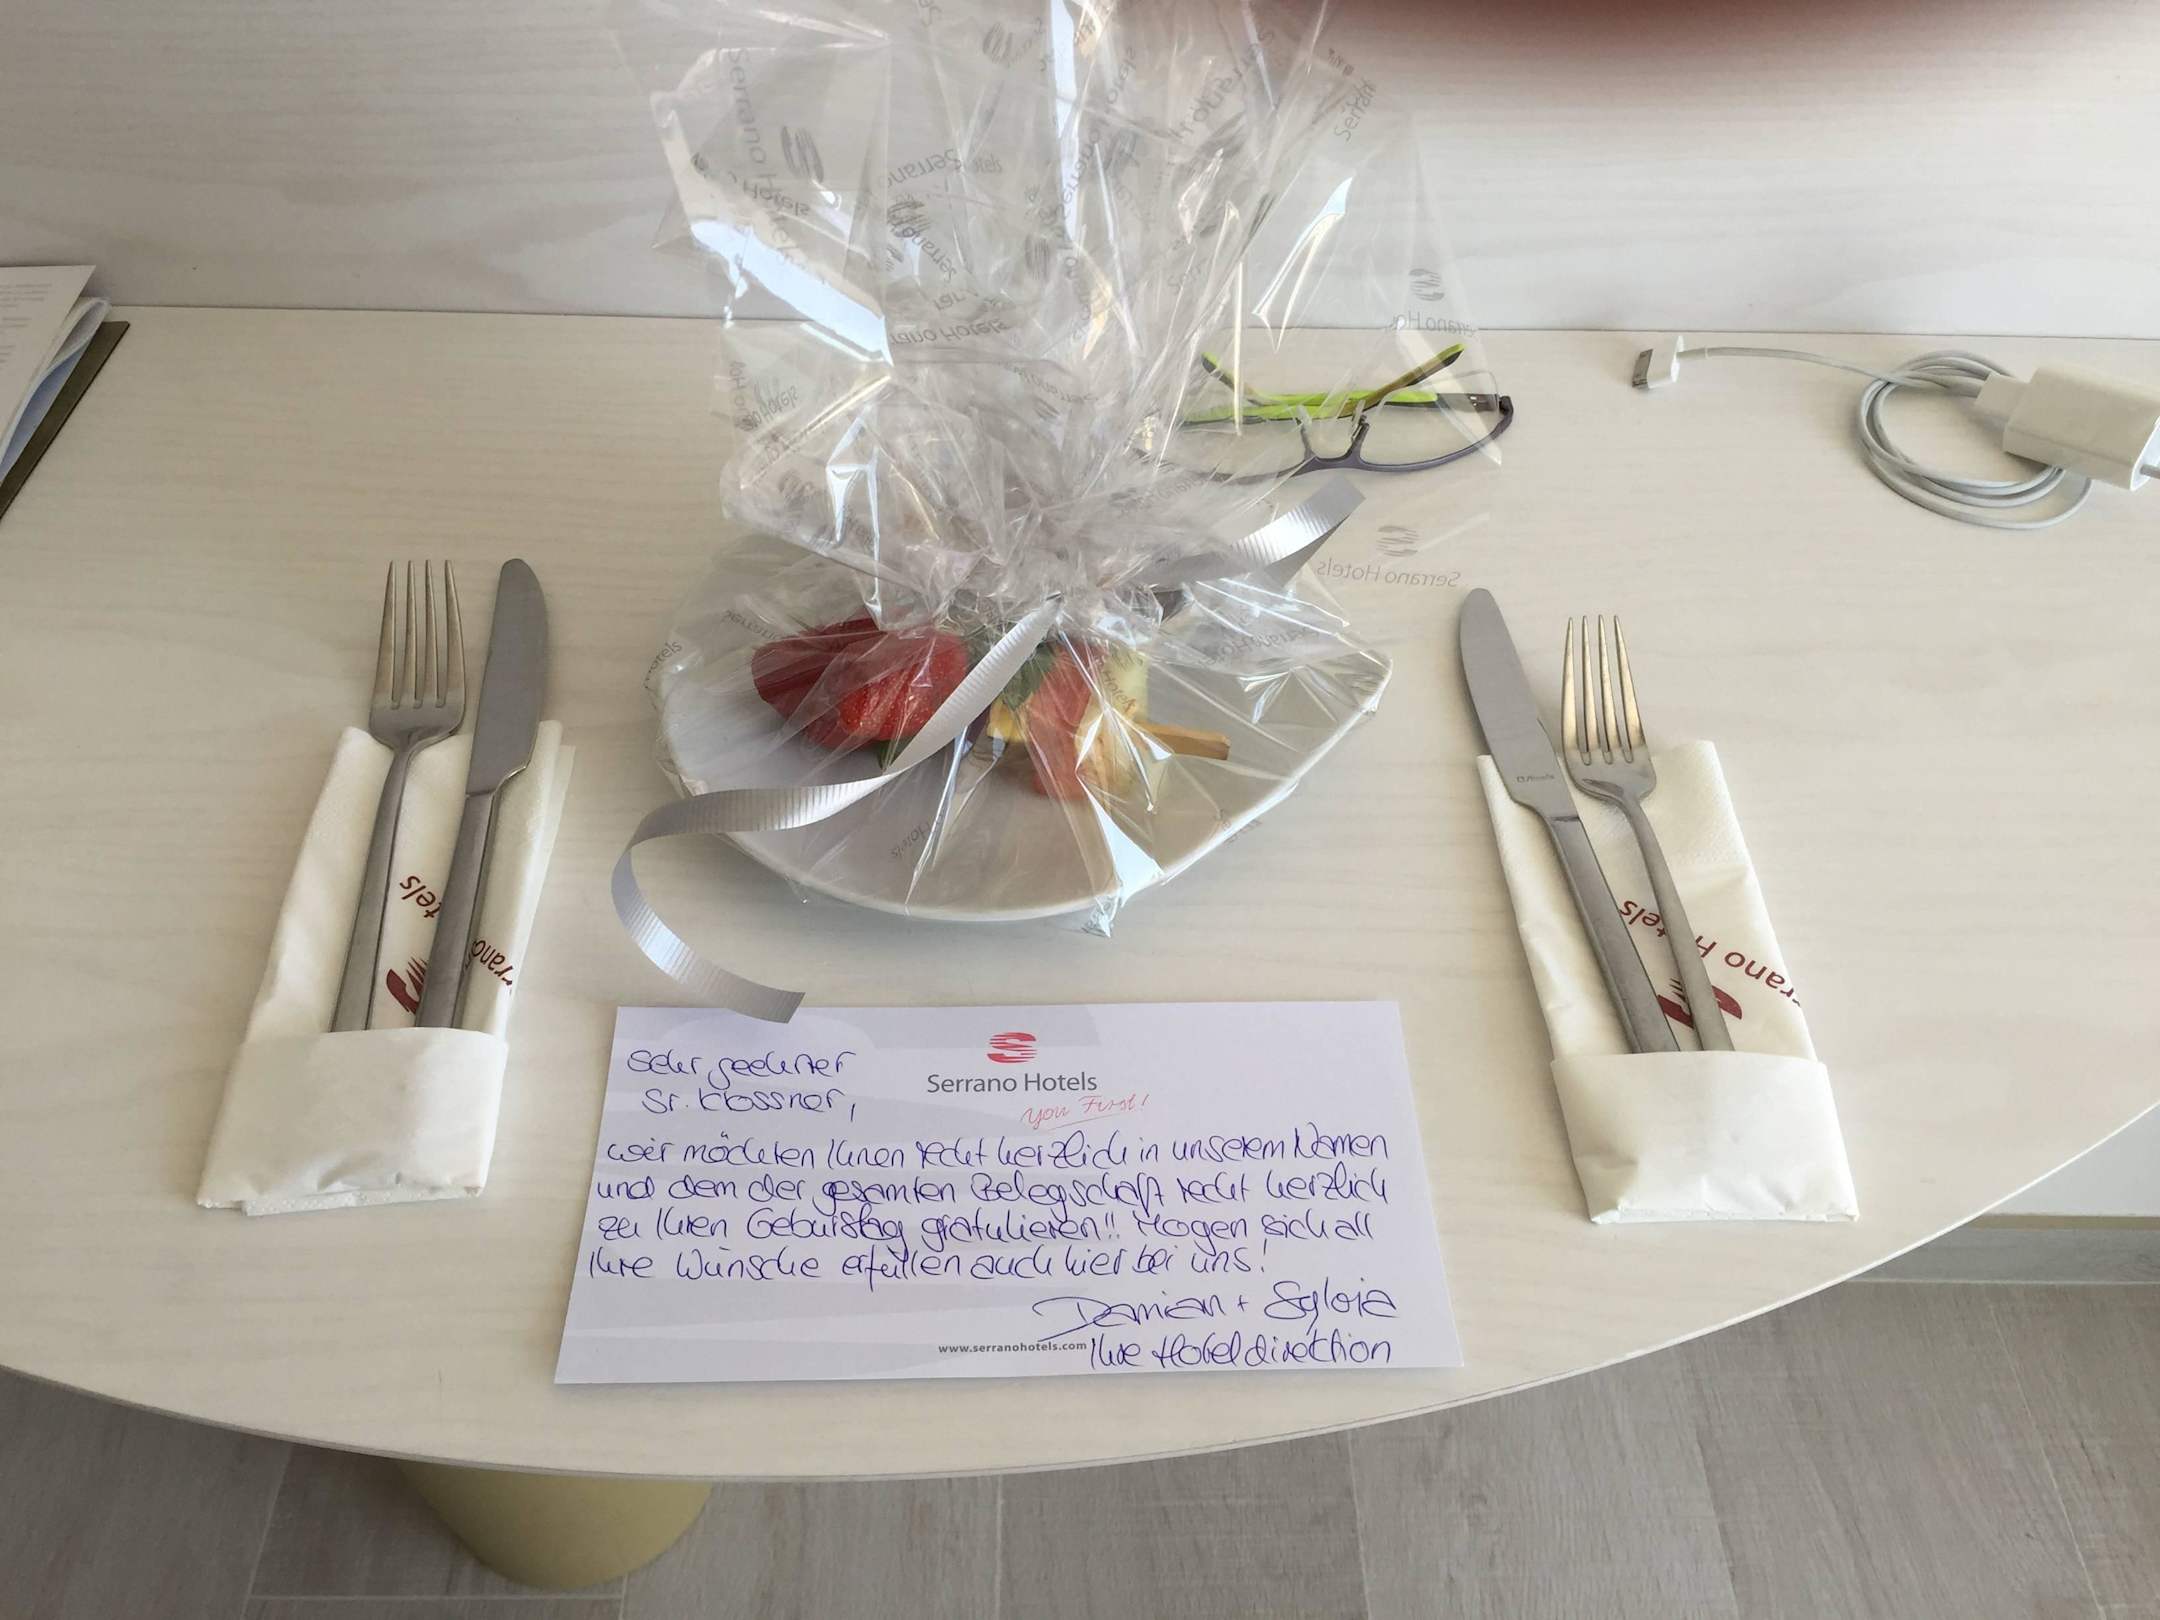 Serrano Hotels
Serrano Hotels
Serrano Hotels
Sehr geehrter
Sr. Klossner,
Serrano Hotels
You First!
wir möchten Ihnen recht herzlich in unserem Namen
und dem der gesamten Belegschaft recht herzlich
zu Ihren Geburtstag gratulieren!! Mögen sich all
Ihre Wünsche erfüllen auch hier bei uns!
Damian + Sylvia
www.serranohotels.com
Ihre Hoteldirektion